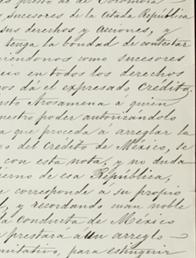 de Colombia
sucesores de la citada República
sus derechos y acciones, y
tenga la bondad de contestar
iéndonos como sucesores
en todos los derechos
da el expresado crédito,
a quien
poder autorizándolo
que proceda a arreglar la
del Crédito de México, se
con esta nota, y no duda
ierno de esa República,
corresponde a su propio
y recordando cuan noble
la conducta de México
prestará a un arreglo
uitativo, para extinguir